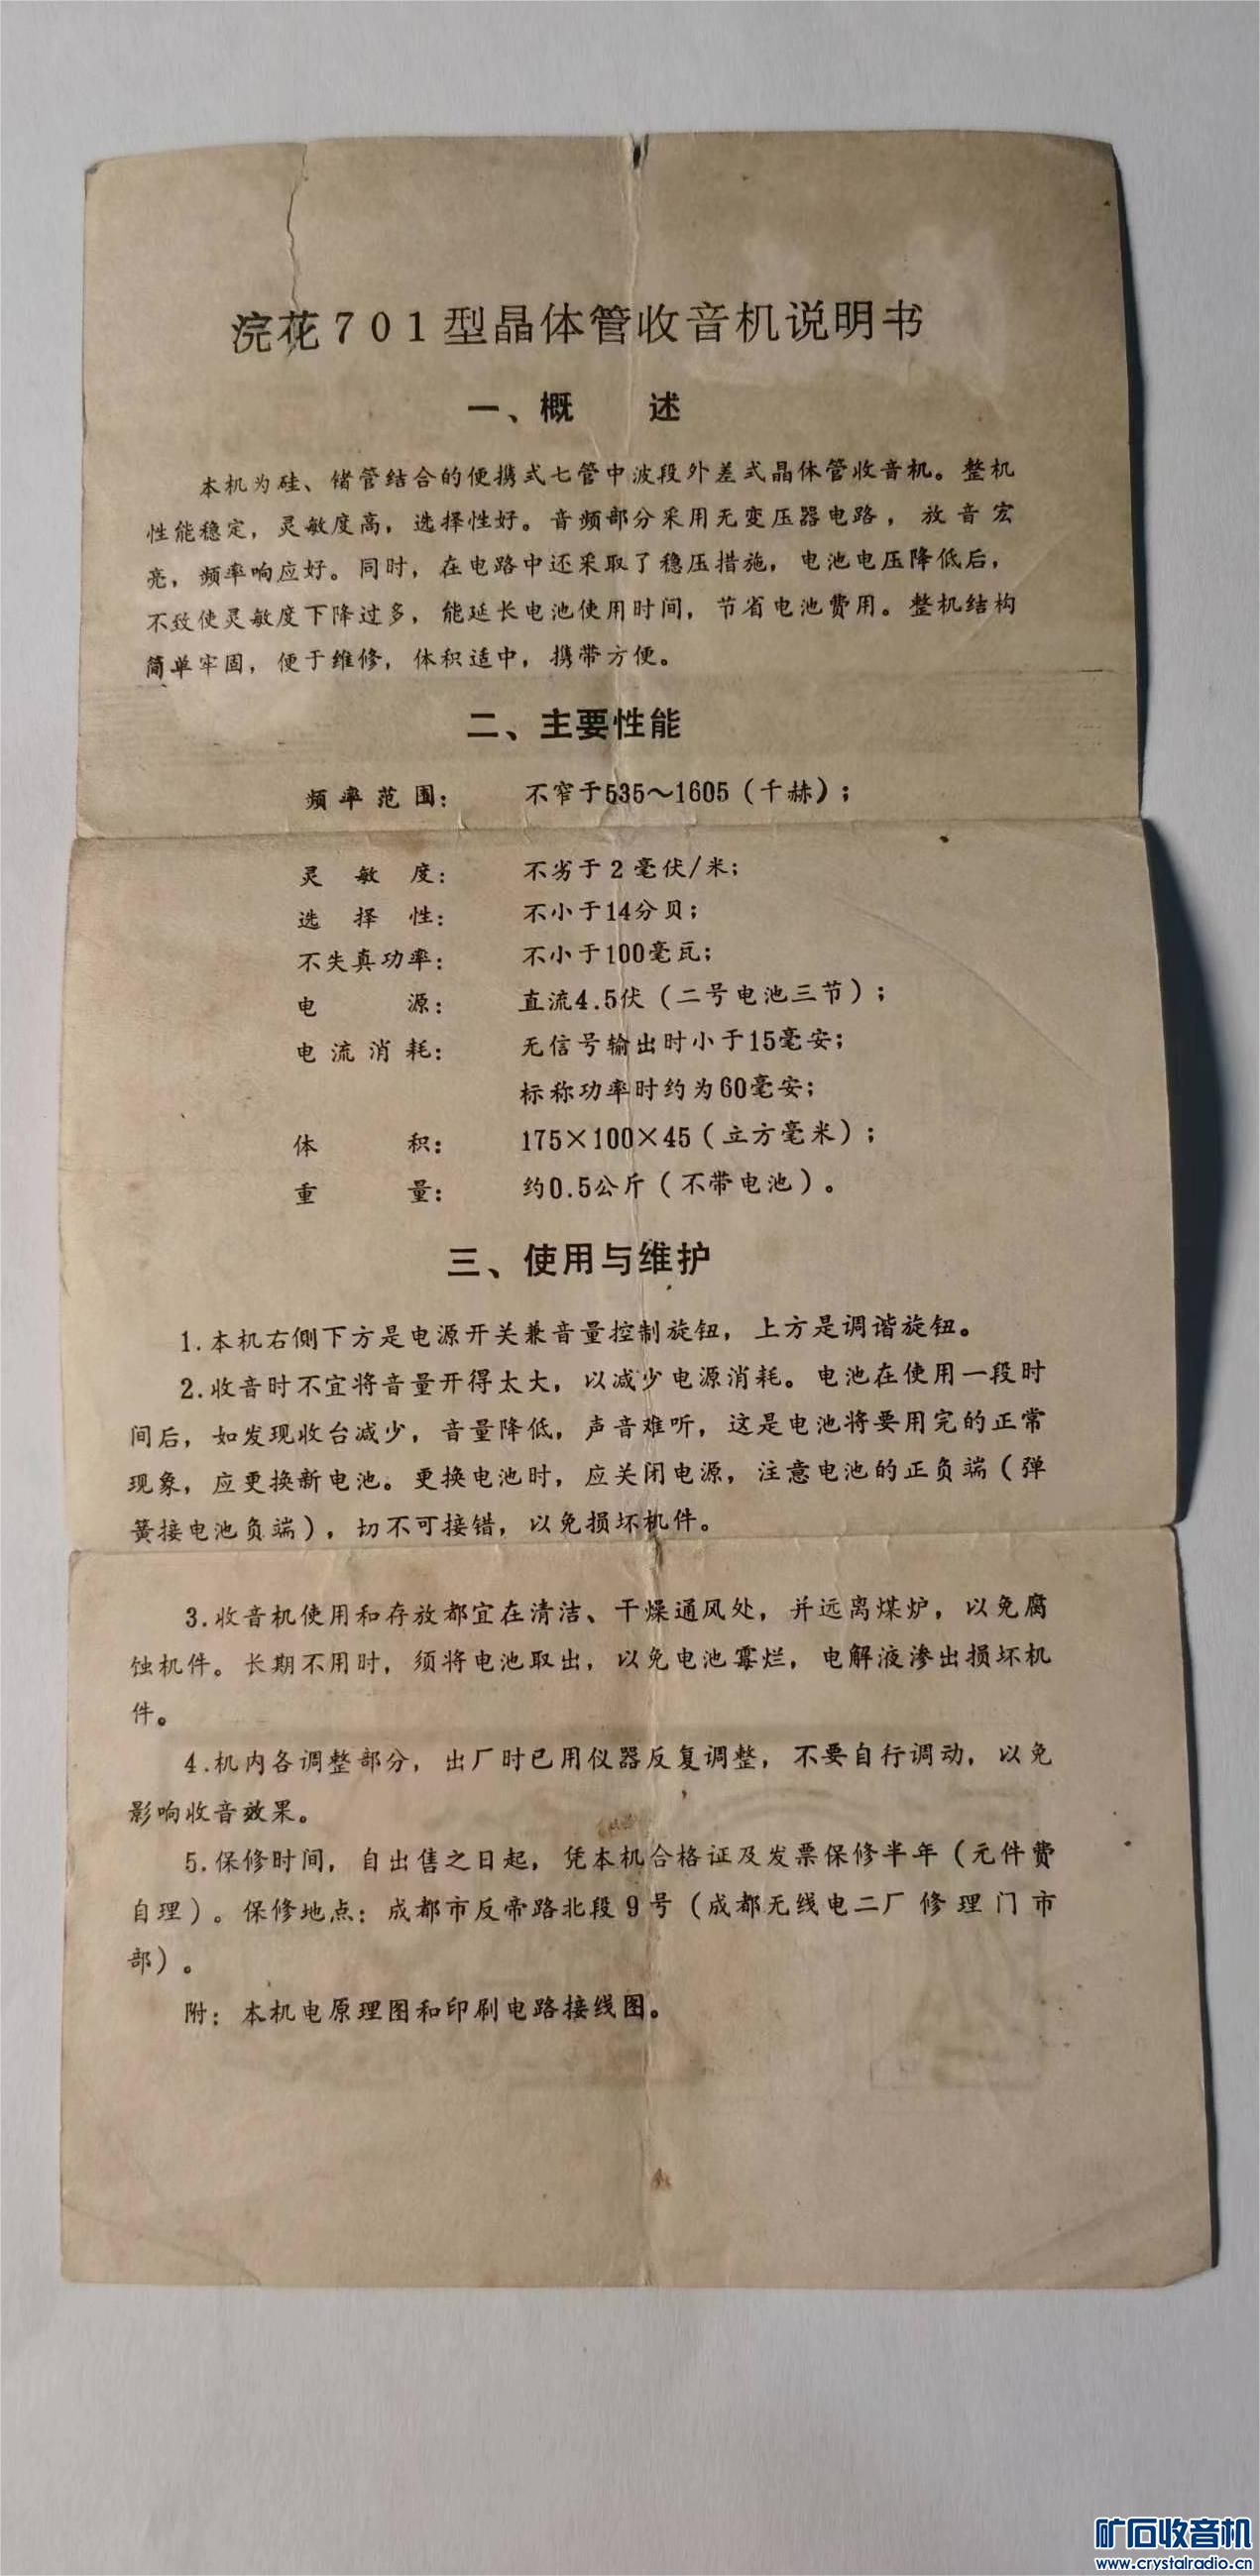 浣花701型晶体管收音机说明书
一、概 述
本机为硅、锗管结合的便携式七管中波段外差式晶体管收音机。整机
性能稳定，灵敏度高，选择性好。音频部分采用无变压器电路，放音宏
亮，频率响应好。同时，在电路中还采取了稳压措施，电池电压降低后，
不致使灵敏度下降过多，能延长电池使用时间，节省电池费用。整机结构
简单牢固，便于维修，体积适中，携带方便。
二、主要性能
频率范围： 不窄于535～1605（千赫）；
灵敏度： 不劣于2毫伏/米；
选择性： 不小于14分贝；
不失真功率： 不小于100毫瓦；
电源： 直流4.5伏（二号电池三节）；
电流消耗： 无信号输出时小于15毫安；
标称功率时约为60毫安；
体积： 175×100×45（立方毫米）；
重量： 约0.5公斤（不带电池）。
三、使用与维护
1.本机右侧下方是电源开关兼音量控制旋钮，上方是调谐旋钮。
2.收音时不宜将音量开得太大，以减少电源消耗。电池在使用一段时
间后，如发现收台减少，音量降低，声音难听，这是电池将要用完的正常
现象，应更换新电池。更换电池时，应关闭电源，注意电池的正负端（弹
簧接电池负端），切不可接错，以免损坏机件。
3.收音机使用和存放都宜在清洁、干燥通风处，并远离煤炉，以免腐
蚀机件。长期不用时，须将电池取出，以免电池霉烂，电解液渗出损坏机
件。
4.机内各调整部分，出厂时已用仪器反复调整，不要自行调动，以免
影响收音效果。
5.保修时间，自出售之日起，凭本机合格证及发票保修半年（元件费
自理）。保修地点：成都市反帝路北段9号（成都无线电二厂修理门市
部）。
附：本机电原理图和印刷电路接线图。
矿石收音机
www.crystalradio.cn